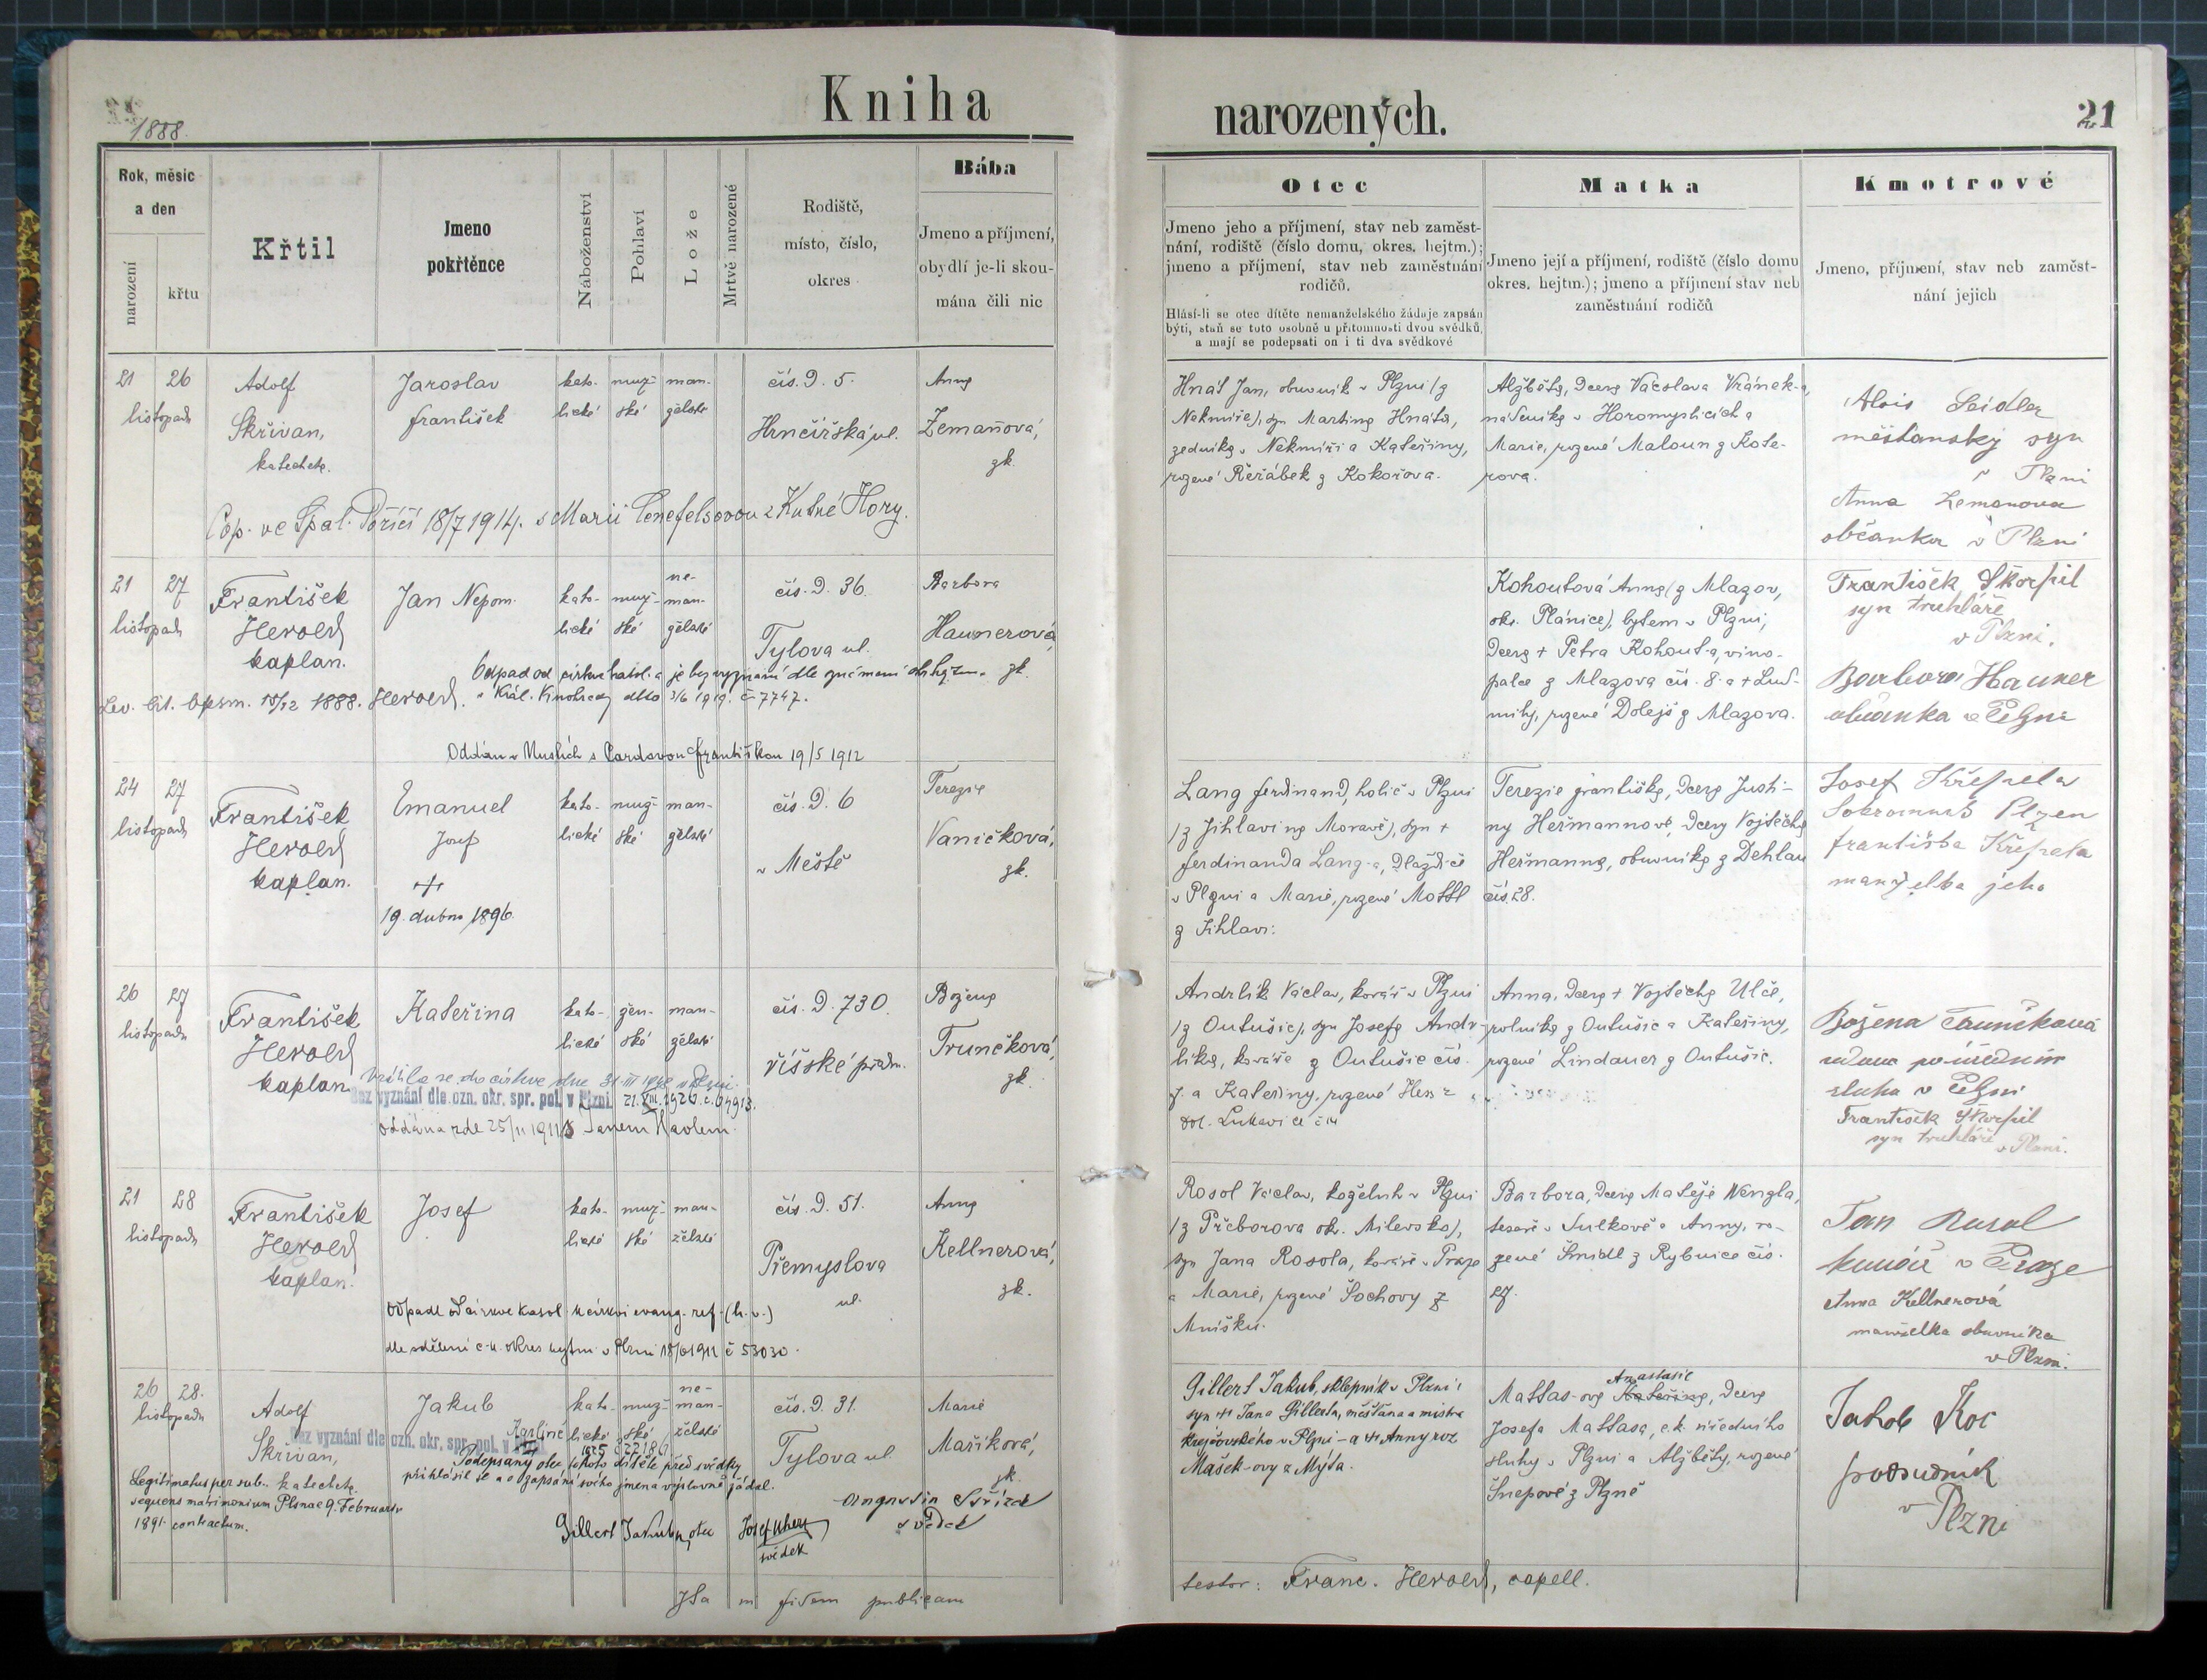 Kniha
narozených.
21
1888.
Rok, měsíc
a den
narození
křtu
Křtil
Jmeno
pokřtěnce
Náboženství
Pohlaví
Lože
Mrtvě narozené
Rodiště,
místo, číslo,
okres
Bába
Jmeno a příjmení,
obydlí je-li skou-
mána čili nic
Otec
Jmeno jeho a příjmení, stav neb zaměst-
nání, rodiště (číslo domu, okres. hejtm.);
jmeno a příjmení, stav neb zaměstnání
rodičů.
Hlásí-li se otec dítěte nemanželského žádaje zapsán
býti, staň se toto osobně u přítomnosti dvou svědků,
a mají se podepsati on i ti dva svědkové
Matka
Jmeno její a příjmení, rodiště (číslo domu
okres. hejtm.); jmeno a příjmení stav neb
zaměstnání rodičů
Kmotrové
Jmeno, příjmení, stav neb zaměst-
nání jejich
21 26
listopadu
Adolf
Skřivan,
katecheta.
Jaroslav
František
kato-
lické
muž-
ské
man-
želské
čís. d. 5.
Hrnčířská ul.
Anna
Zemanová,
zk.
Cop. ve Spál. Poříčí 18/7 1914. s Marií z Kutné Hory.
Hnát Jan, obuvník v Plzni (z
Nekmíře), syn Martina Hnáta,
zedníka v Nekmíři a Kateřiny,
rozené Řeřábek z Kokořova.
Alžběta, dcera Václava Vránek-a,
nádeníka v Horomyslicích a
Marie, rozené Maloun z Kote-
rova.
Alois Seidler
měšťanský syn
v Plzni
Anna Zemanova
občanka v Plzni
21 27
listopadu
František
Herold
kaplan.
Jan Nepom.
kato-
lické
muž-
ské
ne-
man-
želské
čís. d. 36.
Tylova ul.
Barbora
Haunerová,
zk.
Odpad od církve katol. a je bez vyznání dle oznámení
Lev. lit. 15/12 1888. Herold.
v Král. Vinohrady ddto 3/6 1919. č. 7747.
Oddán v s Františkou 19/5 1912
Kohoutová Anna (z Mlazov,
okr. Plánice), bytem v Plzni,
dcera + Petra Kohout-a, vino-
palce z Mlazova čís. 8. a + Lud-
mily, rozené Dolejš z Mlazova.
František Škorpil
syn truhláře
v Plzni.
Barbora Hauner
občanka v Plzni
24 27
listopadu
František
Herold
kaplan.
Emanuel
Josef
+
19. dubna 1896
kato-
lické
muž-
ské
man-
želské
čís. d. 6
v Městě
Terezie
Vaničková,
zk.
Lang Ferdinand, holič v Plzni
(z Jihlavi na Moravě), syn +
Ferdinanda Lang-a, dlaždiče
v Plzni a Marie, rozené
z Jihlavi.
Terezie Františka, dcera Justi-
ny Heřmannové, dcery Vojtěcha
Heřmanna, obuvníka z Dehlau
čís. 28.
Josef Křepela
Soukromník Plzen
Františka Křepela
manželka jeho
26 27
listopadu
František
Herold
kaplan.
Kateřina
kato-
lické
žen-
ské
man-
želské
čís. d. 730.
říšské předm.
Božena
Trunečková,
zk.
Vrátila se do církve dne 31. III v Plzni.
Bez vyznání dle ozn. okr. spr. pol. v Plzni
Oddána zde 25/11 1911 s Janem Havlem.
Andrlík Václav, kovář v Plzni
(z Outušic), syn Josefa Andr-
líka, kováře z Outušic čís.
7. a Kateřiny, rozené Hess z
dol. Lukavice č. 14
Anna, dcera + Vojtěcha Ulče,
rolníka z Outušic a Kateřiny,
rozené Lindauer z Outušic.
Božena
sluha v Plzni
František Škorpil
syn truhláře v Plzni.
21 28
listopadu
František
Herold
kaplan.
Josef
kato-
lické
muž-
ské
man-
želské
čís. d. 51.
Přemyslova
ul.
Anna
Kellnerová,
zk.
Odpadl od církve katol. k církvi evang. ref. (h. v.)
dle sdělení c. k. okres. hejtm. v Plzni 18/6 1911 č 53030.
Rosol Václav, koželuh v Plzni
(z Přeborova okr. Milevsko),
syn Jana Rosola, kováře v Praze
a Marie, rozené Sochovy z
Mníšku.
Barbora, dcera Matěje Wengla,
tesaře v Sulkově a Anny, ro-
zené Šmidl z Rybnice čís.
27.
Jan Rosol
kovář v Praze
Anna Kellnerová
manželka obuvníka
v Plzni.
26 28.
listopadu
Adolf
Skřivan,
katecheta.
Jakub
kato-
lické
muž-
ské
ne-
man-
želské
čís. d. 31.
Tylova ul.
Marie
Maříková,
zk.
Bez vyznání dle ozn. okr. spr. pol. v
Podepsaný otec tohoto dítěte před svědky
přihlásil se a o zapsání svého jmena výslovně žádal.
Legitimatus per sub-
sequens matrimonium Plsnae 9. Februarii
1891. contractum.
Gillert Jakub, otec
svědek
Augustin
svědek
Gillert Jakub, sklepník v Plzni,
syn + Jana Gillerta, měšťana a mistra
krejčovského v Plzni - a + Anny roz
Mašek-ovy z Mýta.
Mattas-ova Kateřina, dcera
Anastasie
Josefa Mattasa, c. k. úředního
sluhy v Plzni a Alžběty, rozené
Šnepové z Plzně
Jakob Koc
podsudník
v Plzni
Ita in fidem publicam
testor: Franc. Herold, capell.